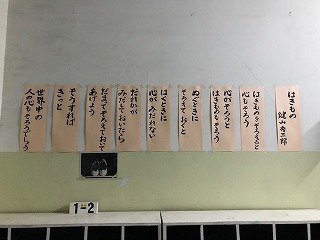 はきもの
鍵山秀三郎
はきものをそろえると
心もそろう
心がそろうと
はきものもそろう
ぬぐときに
そろえておくと
はくときに
心がみだれない
だれかが
みだしておいたら
だまってそろえておいて
あげよう
そうすれば
きっと
世界中の
人の心もそろうでしょう
1-2